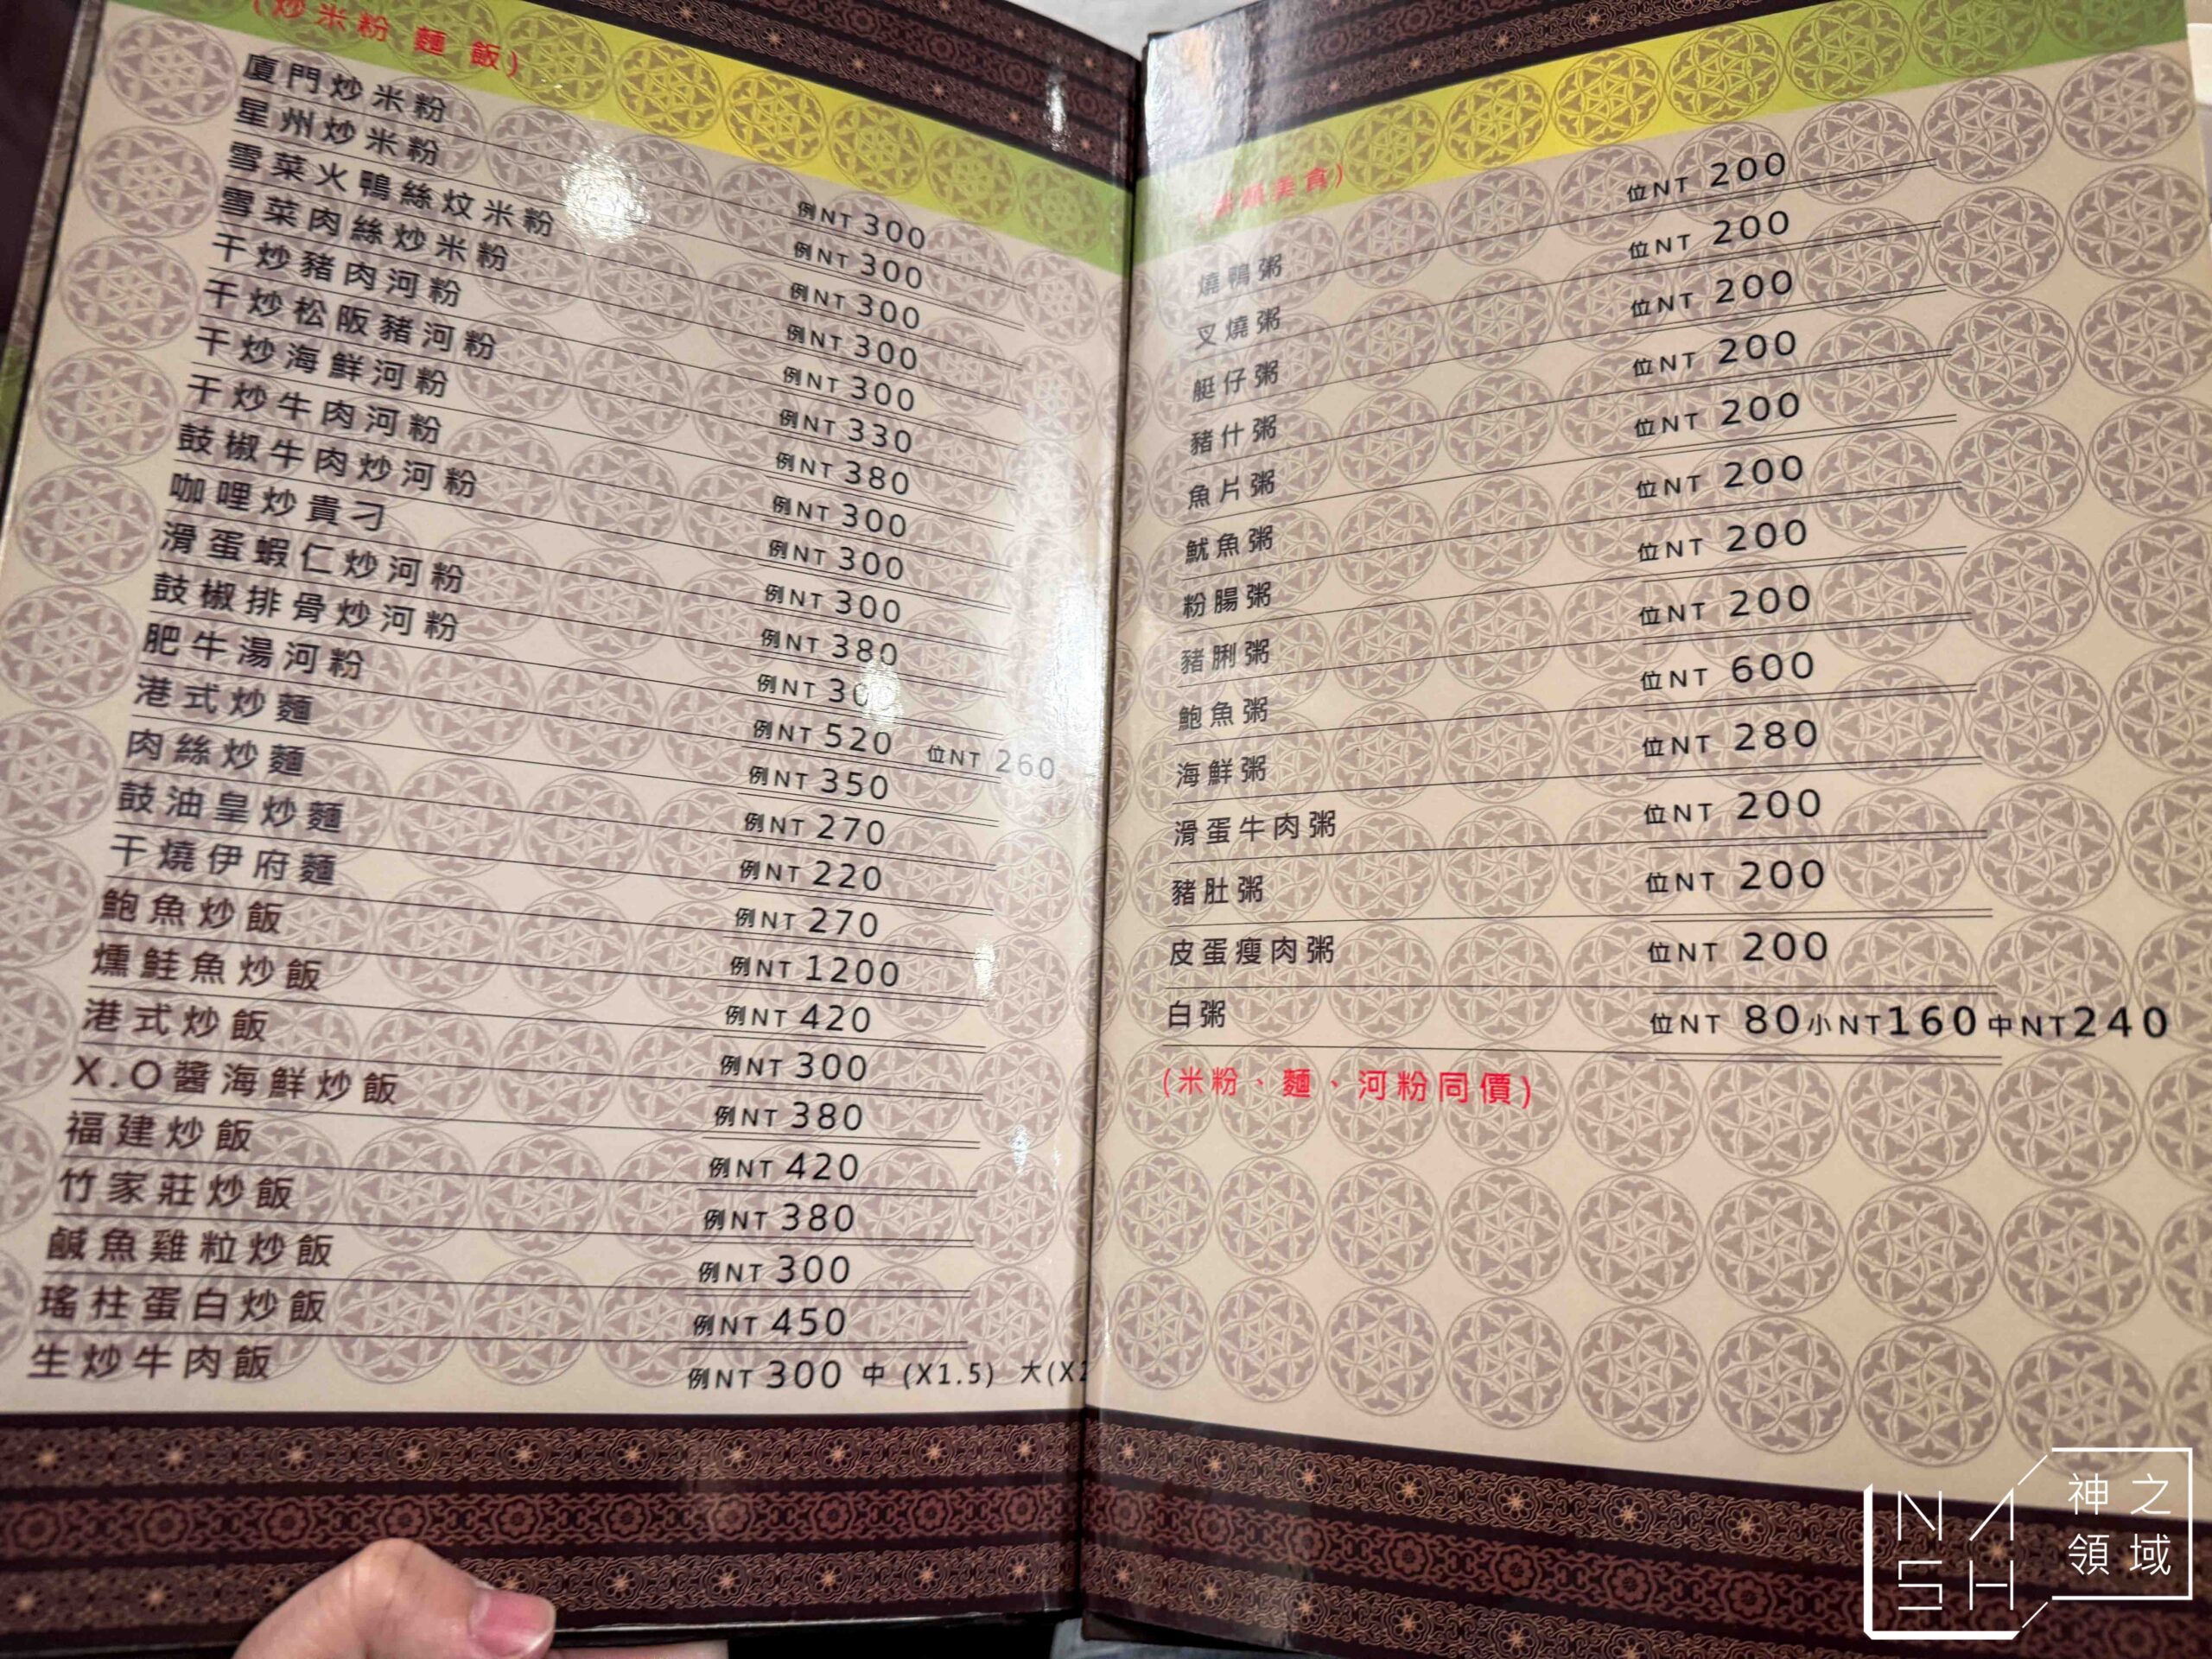 (炒米粉 麵 飯)
廈門炒米粉 例NT 300
星州炒米粉 例NT 300
雪菜火鴨絲炆米粉 例NT 300
雪菜肉絲炒米粉 例NT 300
干炒豬肉河粉 例NT 300
干炒松阪豬河粉 例NT 330
干炒海鮮河粉 例NT 380
干炒牛肉河粉 例NT 300
鼓椒牛肉炒河粉 例NT 300
咖哩炒貴刁 例NT 300
滑蛋蝦仁炒河粉 例NT 380
鼓椒排骨炒河粉 例NT 300
肥牛湯河粉 例NT 520 位NT 260
港式炒麵 例NT 350
肉絲炒麵 例NT 270
鼓油皇炒麵 例NT 220
干燒伊府麵 例NT 270
鮑魚炒飯 例NT 1200
燻鮭魚炒飯 例NT 420
港式炒飯 例NT 300
X.O醬海鮮炒飯 例NT 380
福建炒飯 例NT 420
竹家莊炒飯 例NT 380
鹹魚雞粒炒飯 例NT 300
瑤柱蛋白炒飯 例NT 450
生炒牛肉飯 例NT 300 中 (X1.5) 大(X2
美食)
燒鴨粥 位NT 200
叉燒粥 位NT 200
艇仔粥 位NT 200
豬什粥 位NT 200
魚片粥 位NT 200
魷魚粥 位NT 200
粉腸粥 位NT 200
豬脷粥 位NT 200
鮑魚粥 位NT 600
海鮮粥 位NT 280
滑蛋牛肉粥 位NT 200
豬肚粥 位NT 200
皮蛋瘦肉粥 位NT 200
白粥 位NT 80小NT160中NT240
(米粉、麵、河粉同價)
NASH 神之領域